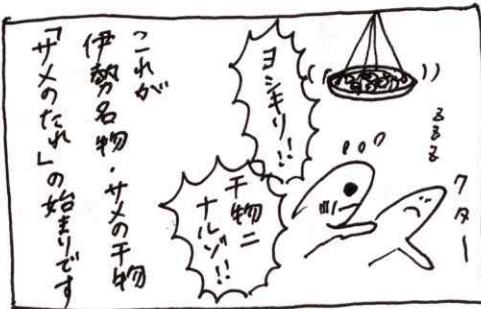 クター
zzz
ヨシキリ!!
干物ニ
ナルゾ!!
これが
伊勢名物・サメの干物
「サメのたれ」の始まりです